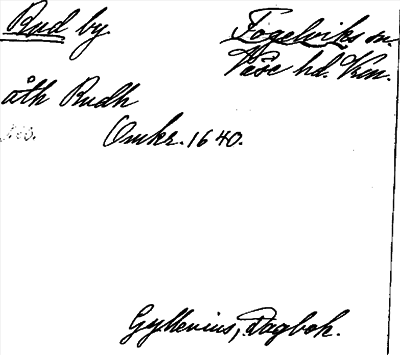 Rud by. Fogelviks sn.
Väse hd. Vrm.
åth Rudh
Omkr. 1640.
Gyllenius, Dagbok.